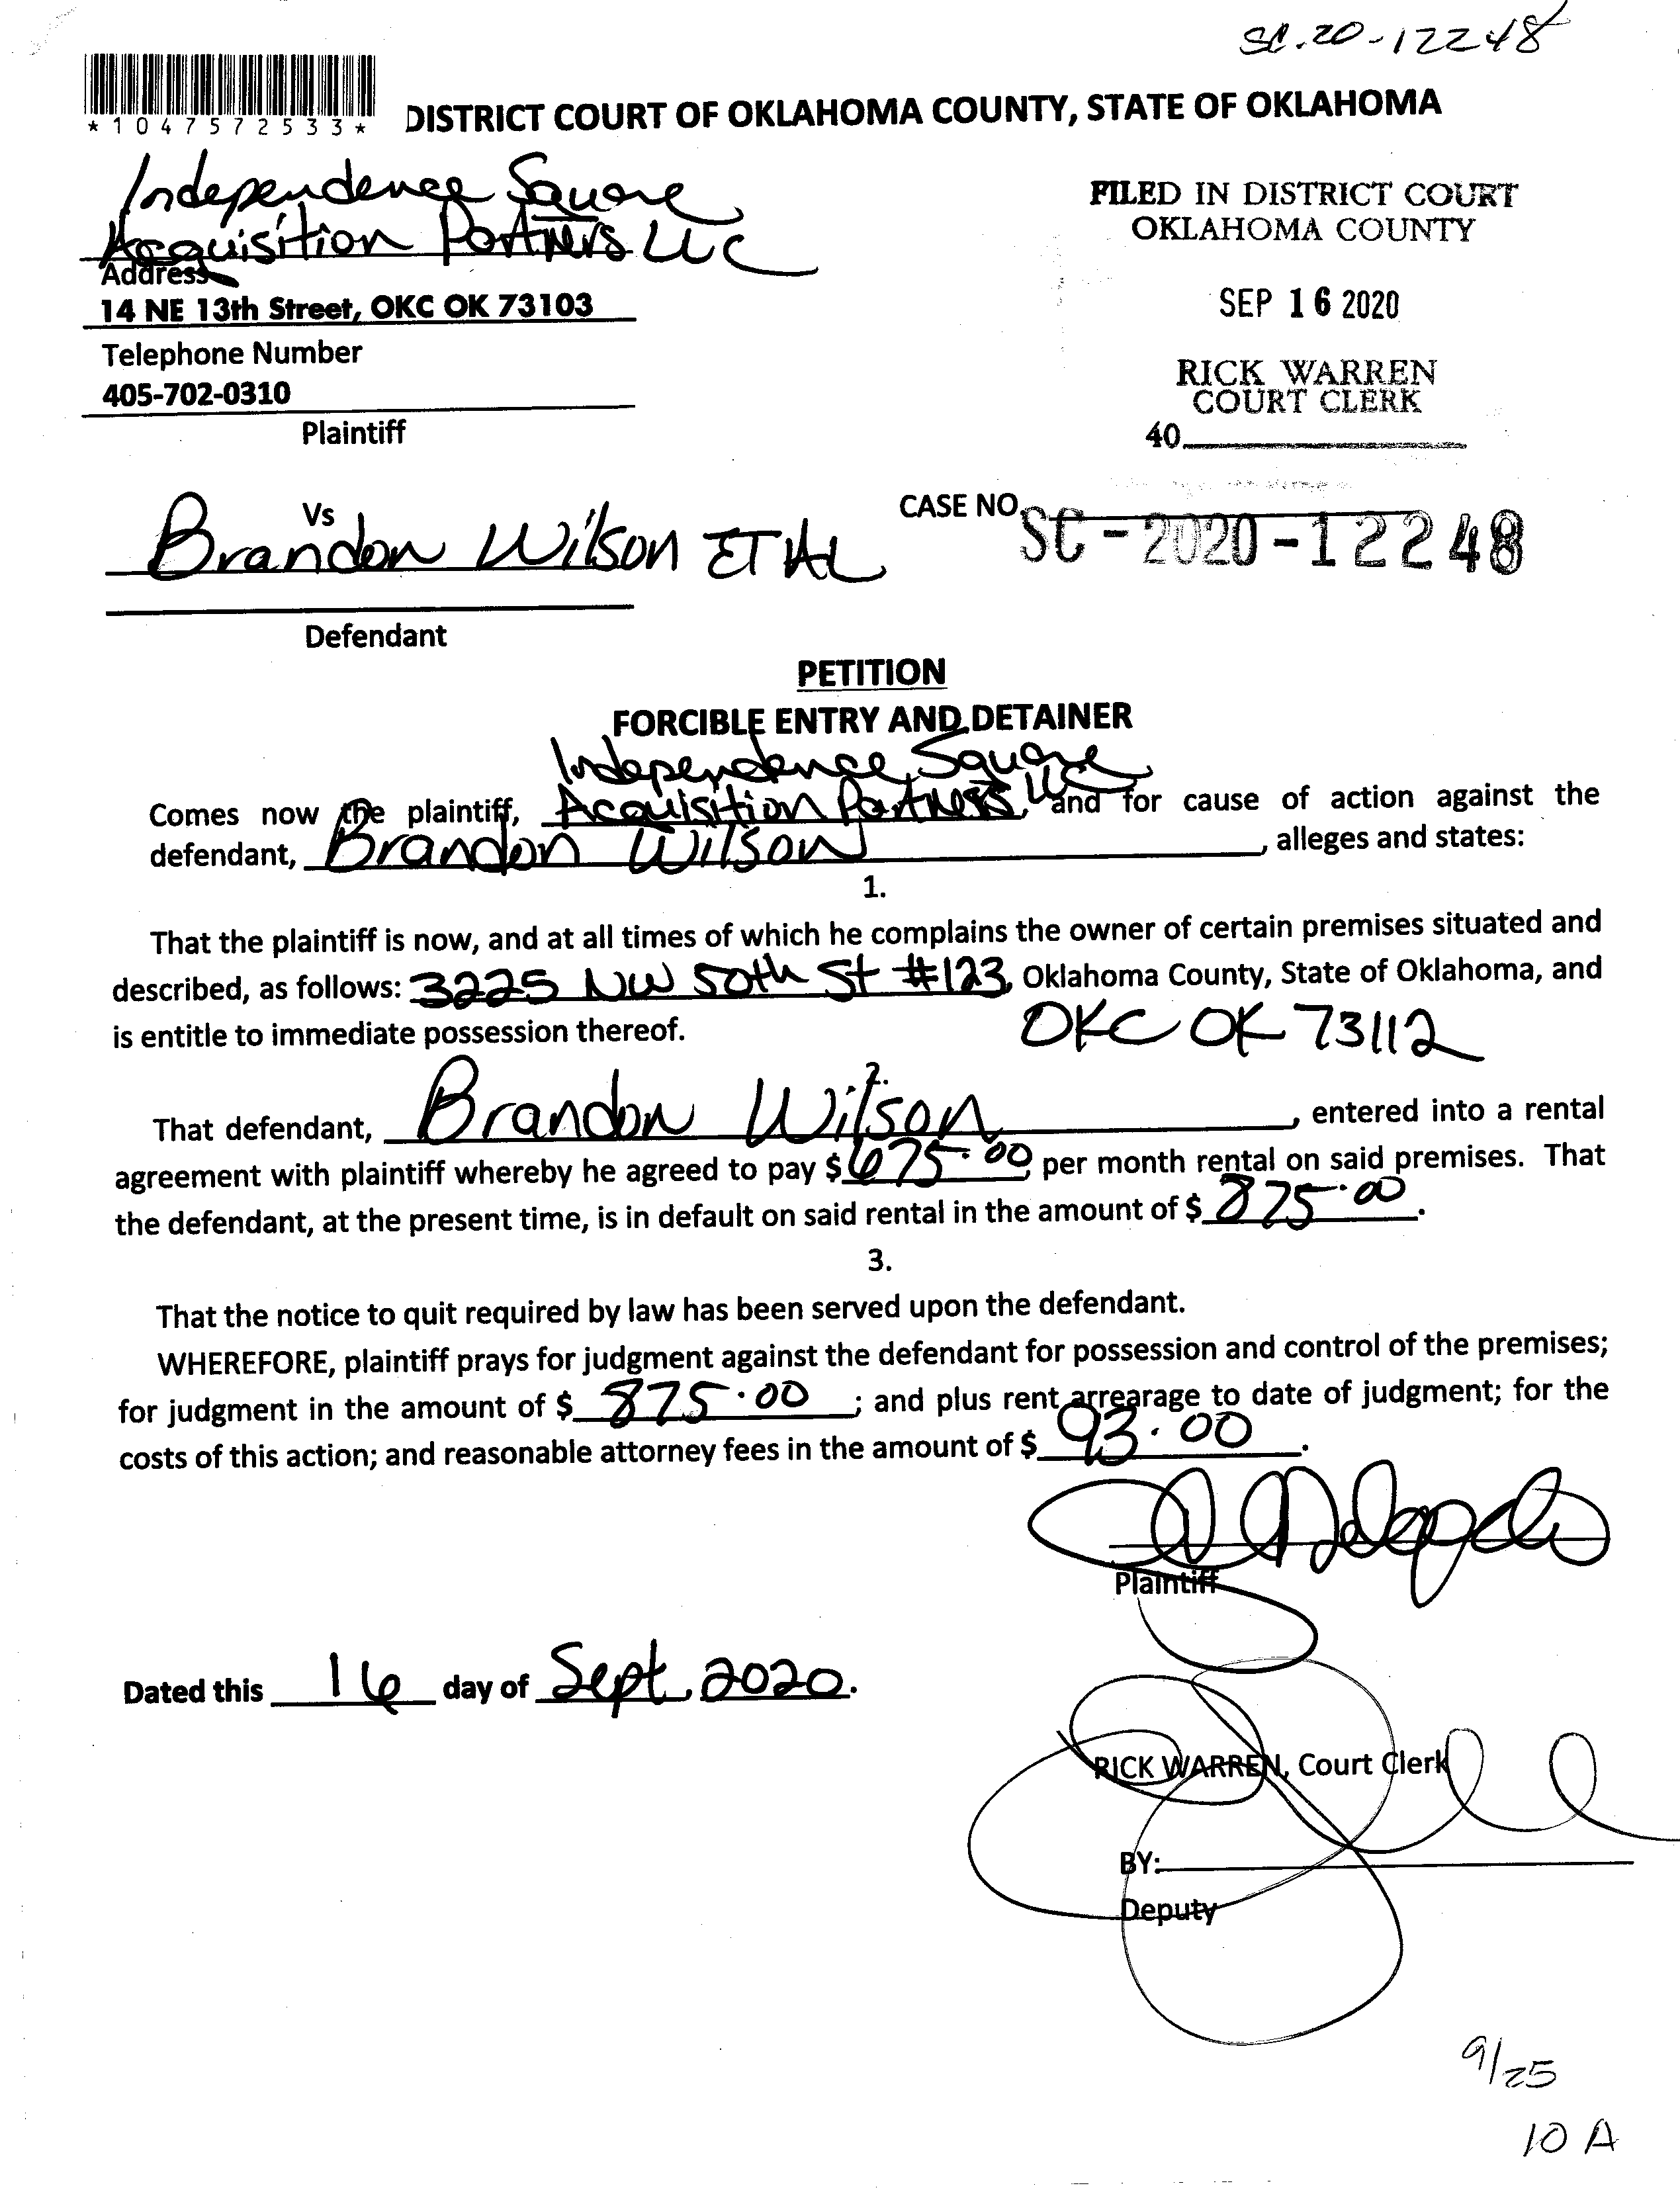 SC-20-12248
*1047572533*
DISTRICT COURT OF OKLAHOMA COUNTY, STATE OF OKLAHOMA
Independence Square
Acquisition Partners LLC
Address
14 NE 13th Street, OKC OK 73103
Telephone Number
405-702-0310
Plaintiff
FILED IN DISTRICT COURT
OKLAHOMA COUNTY
SEP 16 2020
RICK WARREN
COURT CLERK
40
Vs
Brandon Wilson ET AL
CASE NO. SC-2020-12248
Defendant
PETITION
FORCIBLE ENTRY AND DETAINER
Independence Square
Comes now the plaintiff, Acquisition Partners, LLC and for cause of action against the
defendant, Brandon Wilson, alleges and states:
1.
That the plaintiff is now, and at all times of which he complains the owner of certain premises situated and
described, as follows: 3225 NW 50th St #123, Oklahoma County, State of Oklahoma, and
is entitle to immediate possession thereof. OKC OK 73112
2.
That defendant, Brandon Wilson, entered into a rental
agreement with plaintiff whereby he agreed to pay $ 675.00 per month rental on said premises. That
the defendant, at the present time, is in default on said rental in the amount of $ 875.00.
3.
That the notice to quit required by law has been served upon the defendant.
WHEREFORE, plaintiff prays for judgment against the defendant for possession and control of the premises;
for judgment in the amount of $ 875.00; and plus rent arrearage to date of judgment; for the
costs of this action; and reasonable attorney fees in the amount of $ 93.00.
Plaintiff
Dated this 16 day of Sept, 2020.
RICK WARREN, Court Clerk
BY:
Deputy
9/25
10 A